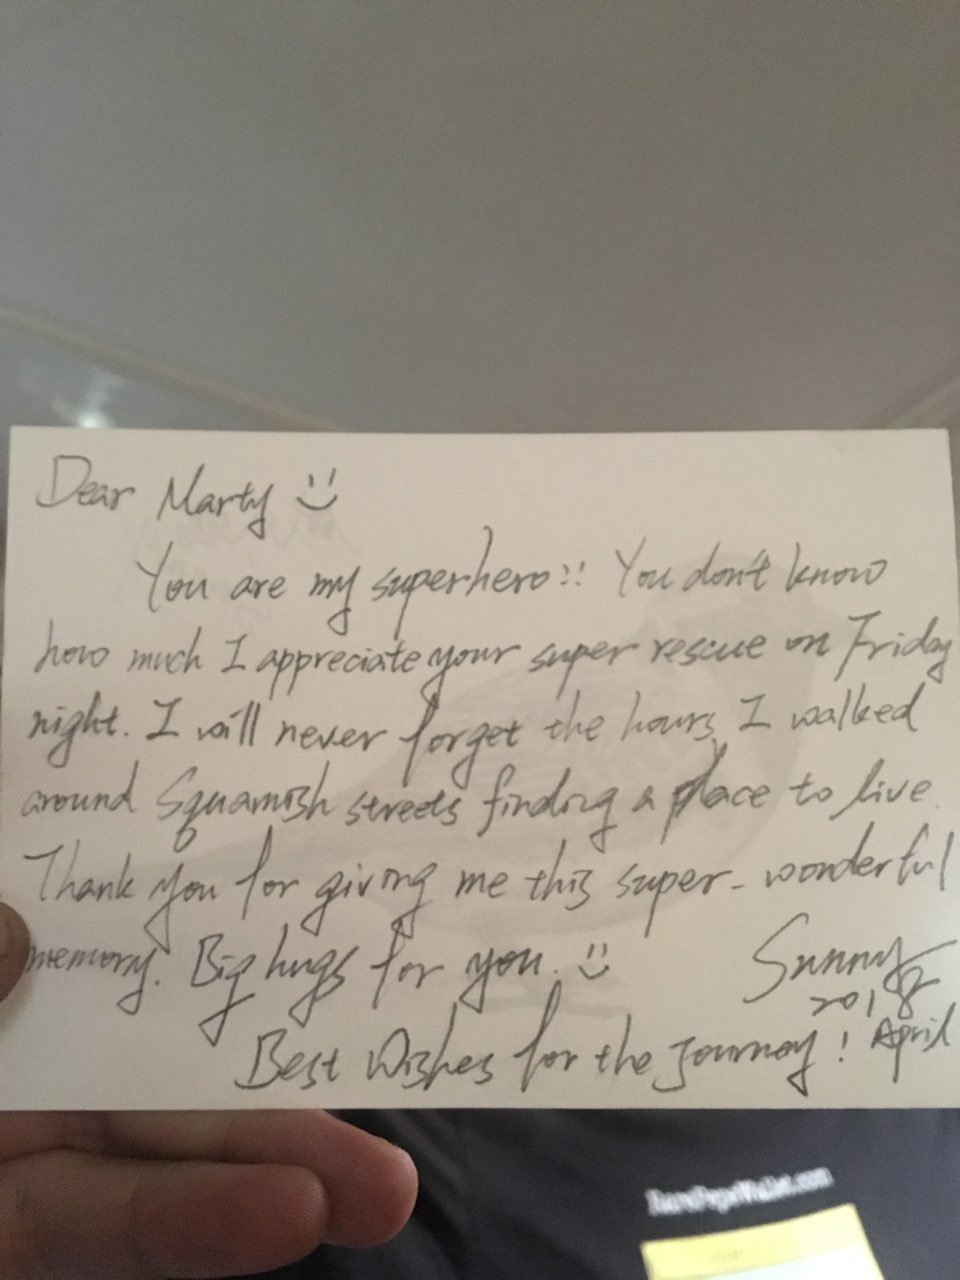 Dear Marty :)
You are my superhero!! You don't know
how much I appreciate your super rescue on Friday
night. I will never forget the hours I walked
around Squamish streets finding a place to live.
Thank you for giving me this super-wonderful
memory. Big hugs for you. :)
Sunny
2018
April
Best Wishes for the Journey!
RarePepeWallet.com